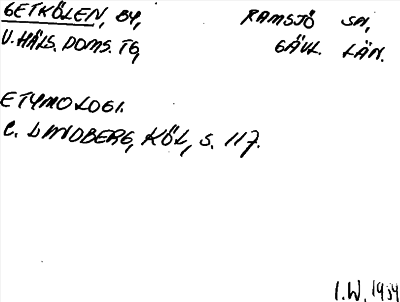 GETKÖLEN, BY, RAMSJÖ SN,
V. HÄLS. DOMS. TG, GÄVL. LÄN.
ETYMOLOGI.
C. LINDBERG, KÖL, S. 117.
I.W. 1934